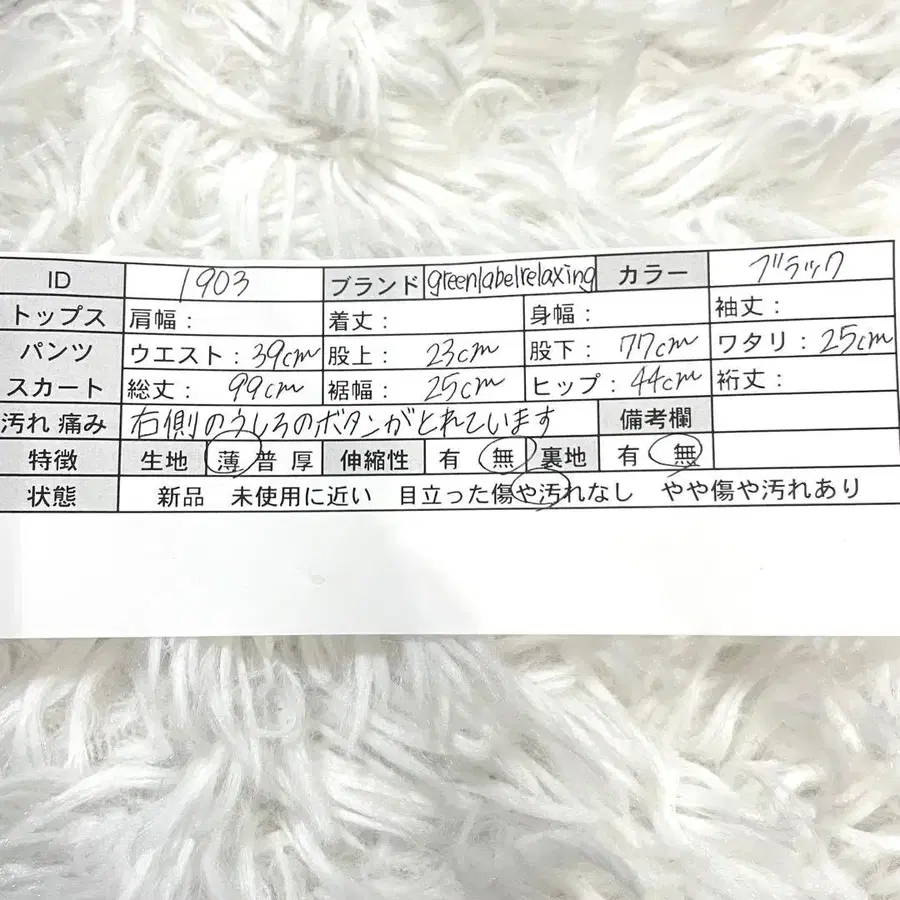 ID 1903 ブランド greenlabelrelaxing カラー ブラック
トップス 肩幅： 着丈： 身幅： 袖丈：
パンツ ウエスト：39cm 股上：23cm 股下：77cm ワタリ：25cm
スカート 総丈：99cm 裾幅：25cm ヒップ：44cm 裄丈：
汚れ 痛み 右側のうしろのボタンがとれています 備考欄
特徴 生地 薄 普 厚 伸縮性 有 無 裏地 有 無
状態 新品 未使用に近い 目立った傷や汚れなし やや傷や汚れあり